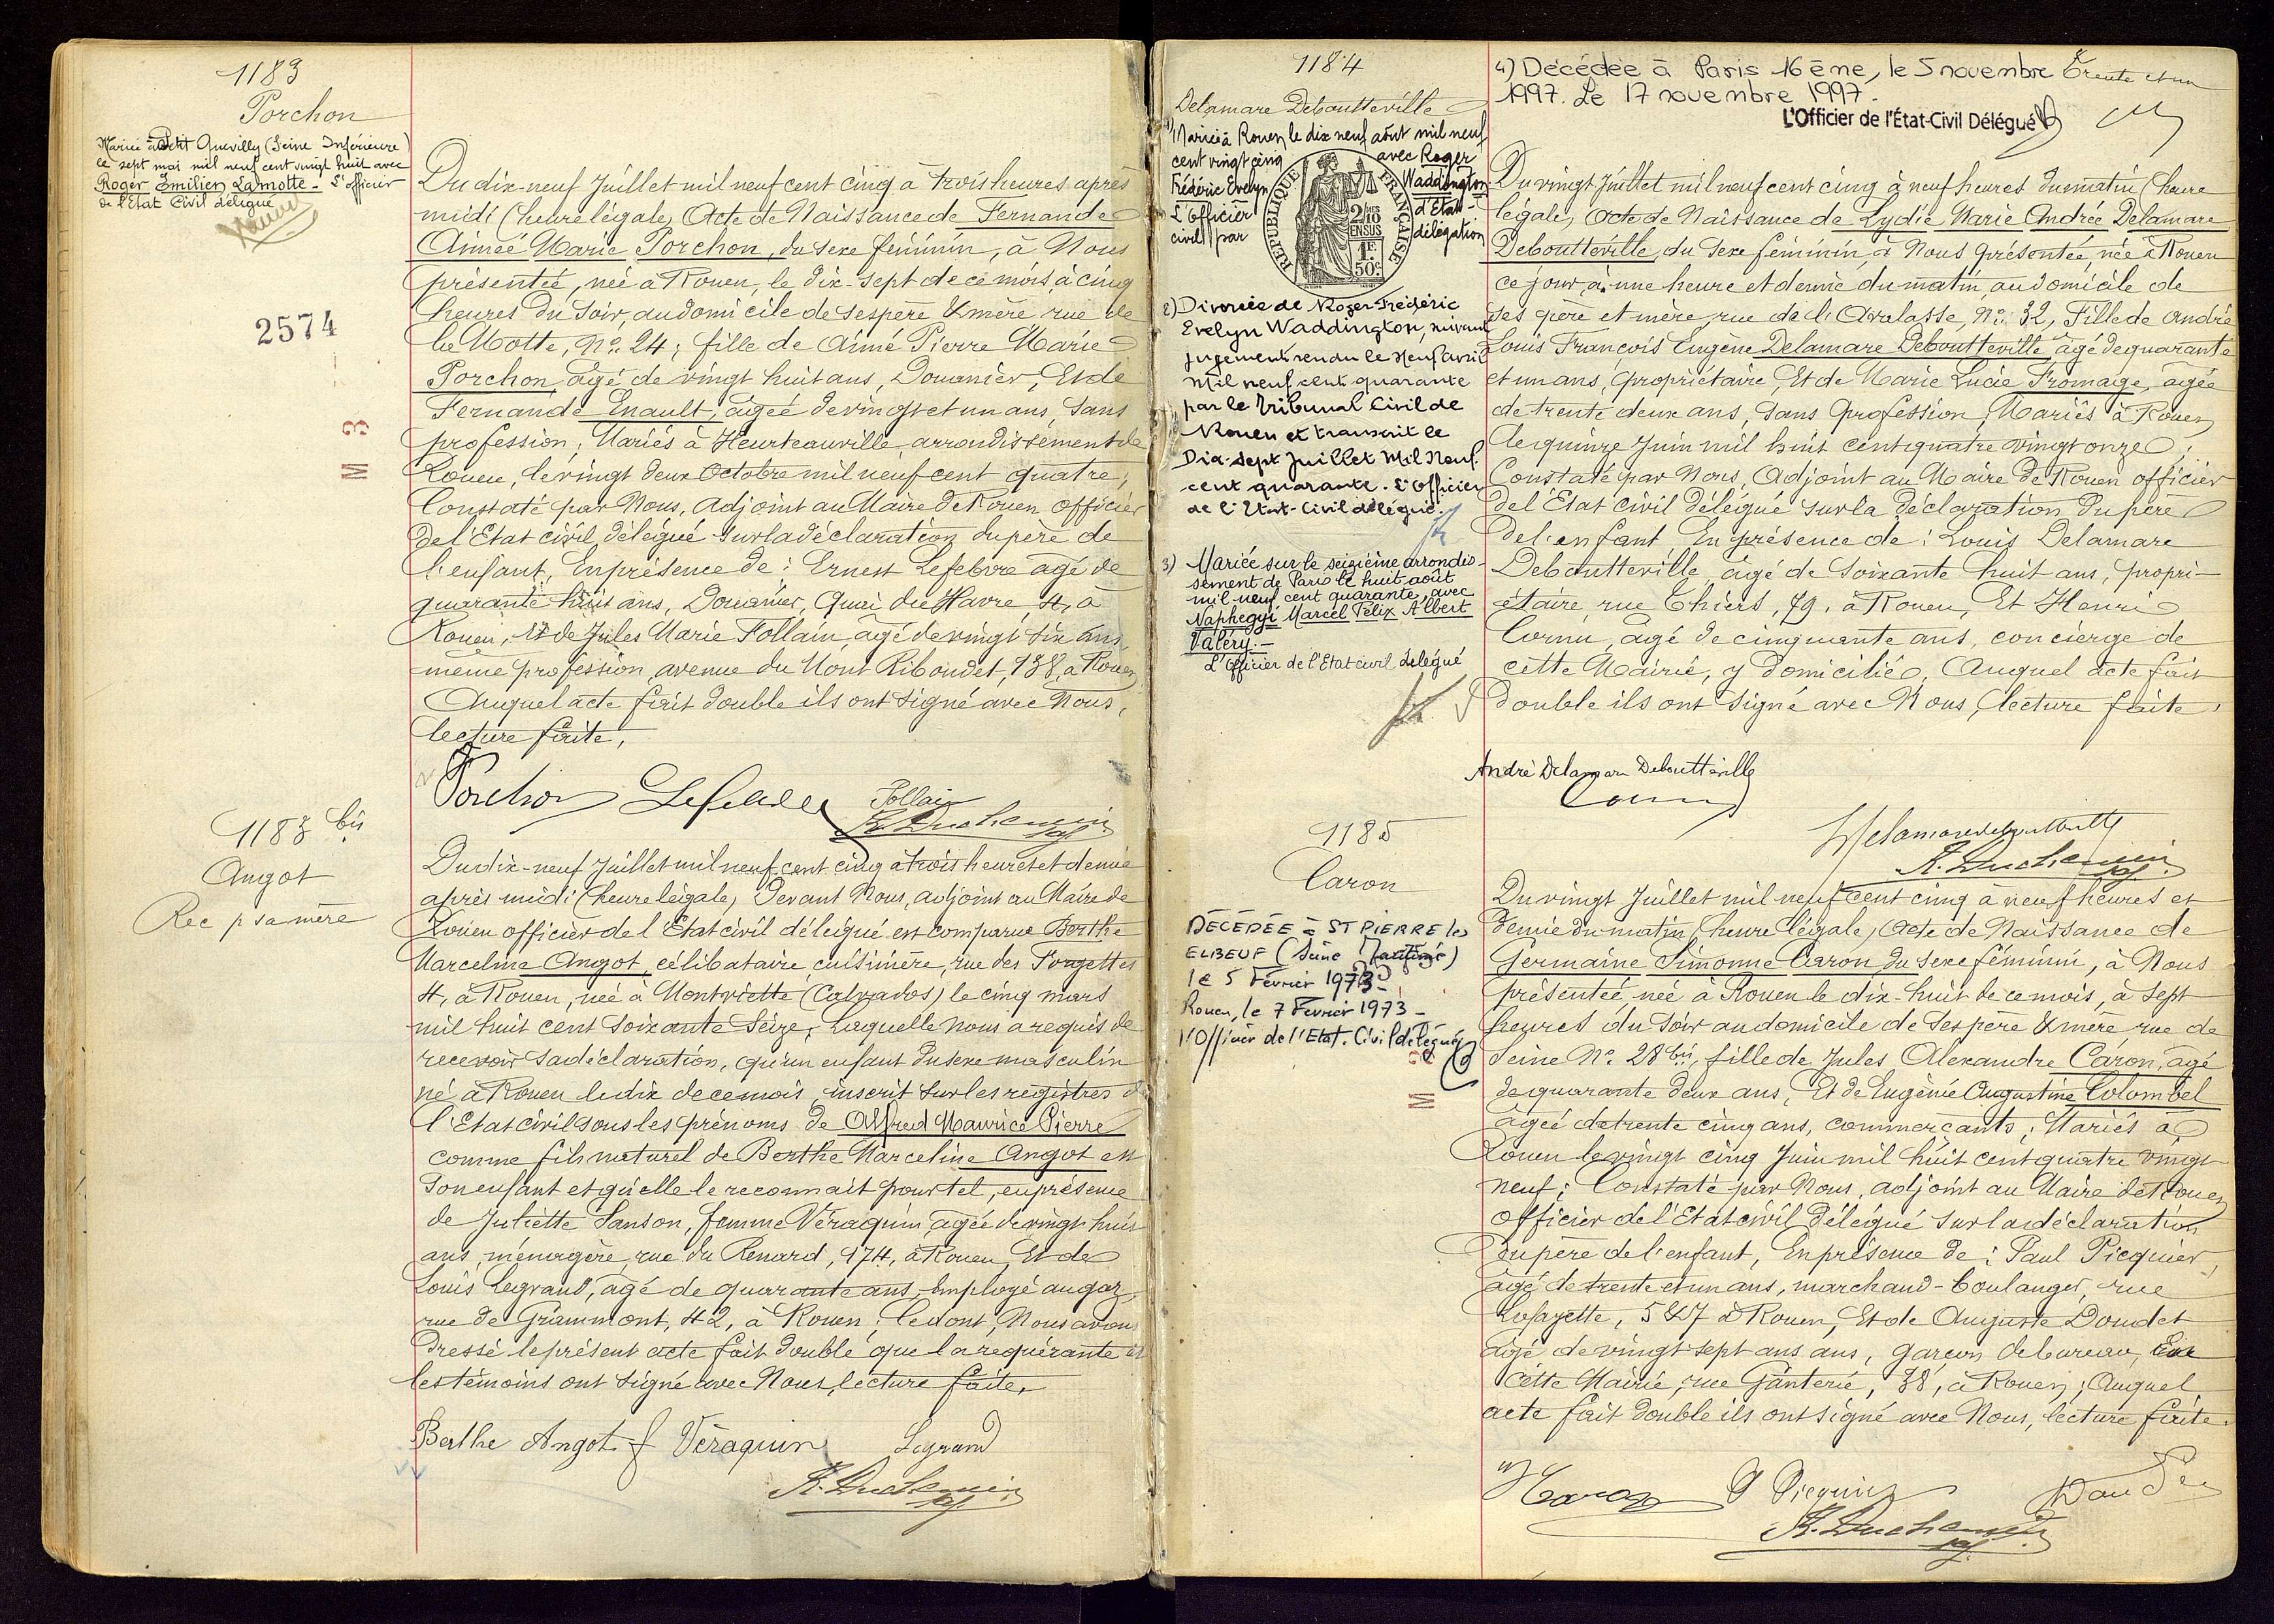 1183
Porchon
Mariée à Petit Quevilly (Seine Inférieure)
le sept mai mil neuf cent vingt huit avec
Roger Emilien Lamotte - L'officier
de l'Etat Civil délégué
2574
M 3
Du dix-neuf Juillet mil neuf cent cinq à trois heures après
midi (heure légale) Acte de Naissance de Fernande
Aimée Marie Porchon, du sexe féminin, à Nous
présentée, née à Rouen, le dix-sept de ce mois, à cinq
heures du soir, au domicile de ses père & mère rue de
la Motte, No. 24; fille de Aimé Pierre Marie
Porchon, âgé de vingt huit ans, Douanier, Et de
Fernande Enault, âgée de vingt et un ans, sans
profession; Mariés à Heurteauville, arrondissement de
Rouen, le vingt deux Octobre mil neuf cent quatre;
Constaté par Nous, Adjoint au Maire de Rouen officier
de l'Etat civil, délégué sur la déclaration du père de
l'enfant, En présence de : Ernest Lefebvre âgé de
quarante huit ans, Douanier, Quai du Havre, 4, à
Rouen, Et de Jules Marie Follain, âgé de vingt six ans,
même profession, avenue du Mont Riboudet, 138, à Rouen,
Auquel acte fait double ils ont signé avec Nous,
lecture faite,
Porchon Lefebvre Follain
R. Duchemin
1183 bis
Angot
Rec p sa mère
Du dix-neuf Juillet mil neuf cent cinq à trois heures et demie
après midi (heure légale) Devant Nous, adjoint au Maire de
Rouen officier de l'Etat civil délégué est comparue Berthe
Marceline Angot, célibataire, cuisinière, rue des Forgettes
4, à Rouen, née à Montviette (Calvados) le cinq mars
mil huit cent soixante seize, Laquelle nous a requis de
recevoir sa déclaration, qu'un enfant du sexe masculin
né à Rouen le dix de ce mois, inscrit sur les registres de
l'Etat civil sous les prénoms de Alfred Maurice Pierre
comme fils naturel de Berthe Marceline Angot est
son enfant et qu'elle le reconnait pour tel, en présence
de Juliette Sanson, femme Véraquin, âgée de vingt huit
ans, ménagère, rue du Renard, 174, à Rouen, Et de
Louis Legrand, âgé de quarante ans, Employé au gaz,
rue de Grammont, 42, à Rouen; Ce dont, Nous avons
Dressé le présent acte fait double que la requérante et
les témoins ont signé avec Nous, lecture faite,
Berthe Angot f Véraquin Legrand
R. Duchemin
1184
Delamare Deboutteville
1) Mariée à Rouen le dix neuf août mil neuf
cent vingt cinq avec Roger
Frédéric Evelyn Waddington
L'officier d'Etat-
civil par délégation
RÉPUBLIQUE FRANÇAISE
2/10 EN SUS
1F. 50c
2) Divorcée de Roger Frédéric
Evelyn Waddington, suivant
jugement rendu le neuf avril
mil neuf cent quarante
par le Tribunal Civil de
Rouen et transcrit le
Dix-sept Juillet Mil Neuf
cent quarante. L'Officier
de l'Etat-Civil délégué.
3) Mariée sur le seizième arrondis-
sement de Paris le huit août
mil neuf cent quarante, avec
Naphegyi Marcel Félix Albert
Valéry.-
L'Officier de l'Etat civil délégué
4) Décédée à Paris 16ème, le 5 novembre
1997. Le 17 novembre 1997.
L'Officier de l'État-Civil Délégué
Trente et un
Du vingt Juillet mil neuf cent cinq à neuf heures du matin (heure
légale) Acte de Naissance de Lydie Marie Andrée Delamare
Deboutteville, du sexe féminin, à Nous présentée, née à Rouen
ce jour, à une heure et demie du matin, au domicile de
ses père et mère, rue de l'Avalasse, No. 32, Fille de André
Louis François Eugène Delamare Deboutteville, âgé de quarante
et un ans, propriétaire, Et de Marie Lucie Fromage, âgée
de trente deux ans, sans profession; Mariés à Rouen
le quinze Juin mil huit cent quatre vingt onze;
Constaté par Nous, Adjoint au Maire de Rouen officier
de l'Etat civil délégué sur la déclaration du père
de l'enfant En présence de : Louis Delamare
Deboutteville, âgé de soixante huit ans, propri-
étaire, rue Thiers, 79, à Rouen, Et Henri
Cornu, âgé de cinquante ans, concierge de
cette Mairie, y domicilié, Auquel acte fait
double ils ont signé avec Nous, lecture faite,
André Delamare Deboutteville
Cornu
L Delamare deboutteville
R. Duchemin
1185
Caron
DÉCÉDÉE à ST PIERRE les
ELBEUF (Seine Maritime)
le 5 Février 1973 -
Rouen, le 7 Février 1973 -
l'Officier de l'Etat-Civil délégué,
M 3
Du vingt Juillet mil neuf cent cinq à neuf heures et
demie du matin (heure légale) Acte de Naissance de
Germaine Simonne Caron, du sexe féminin, à Nous
présentée, née à Rouen le dix-huit de ce mois, à sept
heures du soir au domicile de ses père & mère rue de
Seine No. 28 bis, fille de Jules Alexandre Caron, âgé
de quarante deux ans, Et de Eugénie Augustine Colombel
âgée de trente cinq ans, commerçants; Mariés à
Rouen le vingt cinq Juin mil huit cent quatre vingt
neuf; Constaté par Nous, adjoint au Maire de Rouen
officier de l'Etat civil Délégué sur la déclaration
du père de l'enfant, En présence de : Paul Picquier,
âgé de trente et un ans, marchand-boulanger, rue
Lafayette, 5 & 7 à Rouen, Et de Auguste Doudet
âgé de vingt sept ans ans, garçon de bureau,
cette Mairie, rue Ganterie, 38, à Rouen; Auquel
acte fait double ils ont signé avec Nous, lecture faite.
Caron P Picquier
R. Duchemin